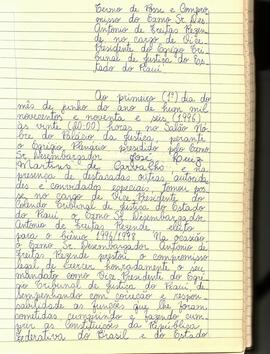 Termo de Posse e Compro-
misso do Exmo Sr Des.
Antonio de Freitas Rezen-
de, no cargo de Vice
Presidente do Egrégio Tri-
bunal de Justiça do Es-
tado do Piauí.
Ao primeiro (1º) dia do
mês de junho do ano de hum mil
novecentos e noventa e seis (1996)
às vinte (20:00) horas no Salão No-
bre do Palácio da Justiça, perante
o Egrégio Plenário presidido pelo Exmo
Sr Desembargador José Luiz
Martins de Carvalho e na
presença de destacadas outras autorida-
des e convidados especiais, tomou pos-
se no cargo de Vice Presidente do
Colendo Tribunal de Justiça do Estado
do Piauí, o Exmo Sr Desembargador
Antonio de Freitas Rezende eleito
para o biênio 1996/1998. Na ocasião
o Exmo Sr Desembargador Antonio de
Freitas Rezende prestou o compromisso
legal de exercer honradamente o seu
mandato como Vice Presidente do Egré-
gio Tribunal de Justiça do Piauí, de-
sempenhando com correção e respon-
sabilidade as funções que lhe foram
cometidas, cumprindo e fazendo cum-
prir as Constituições da República
Federativa do Brasil e do Estado